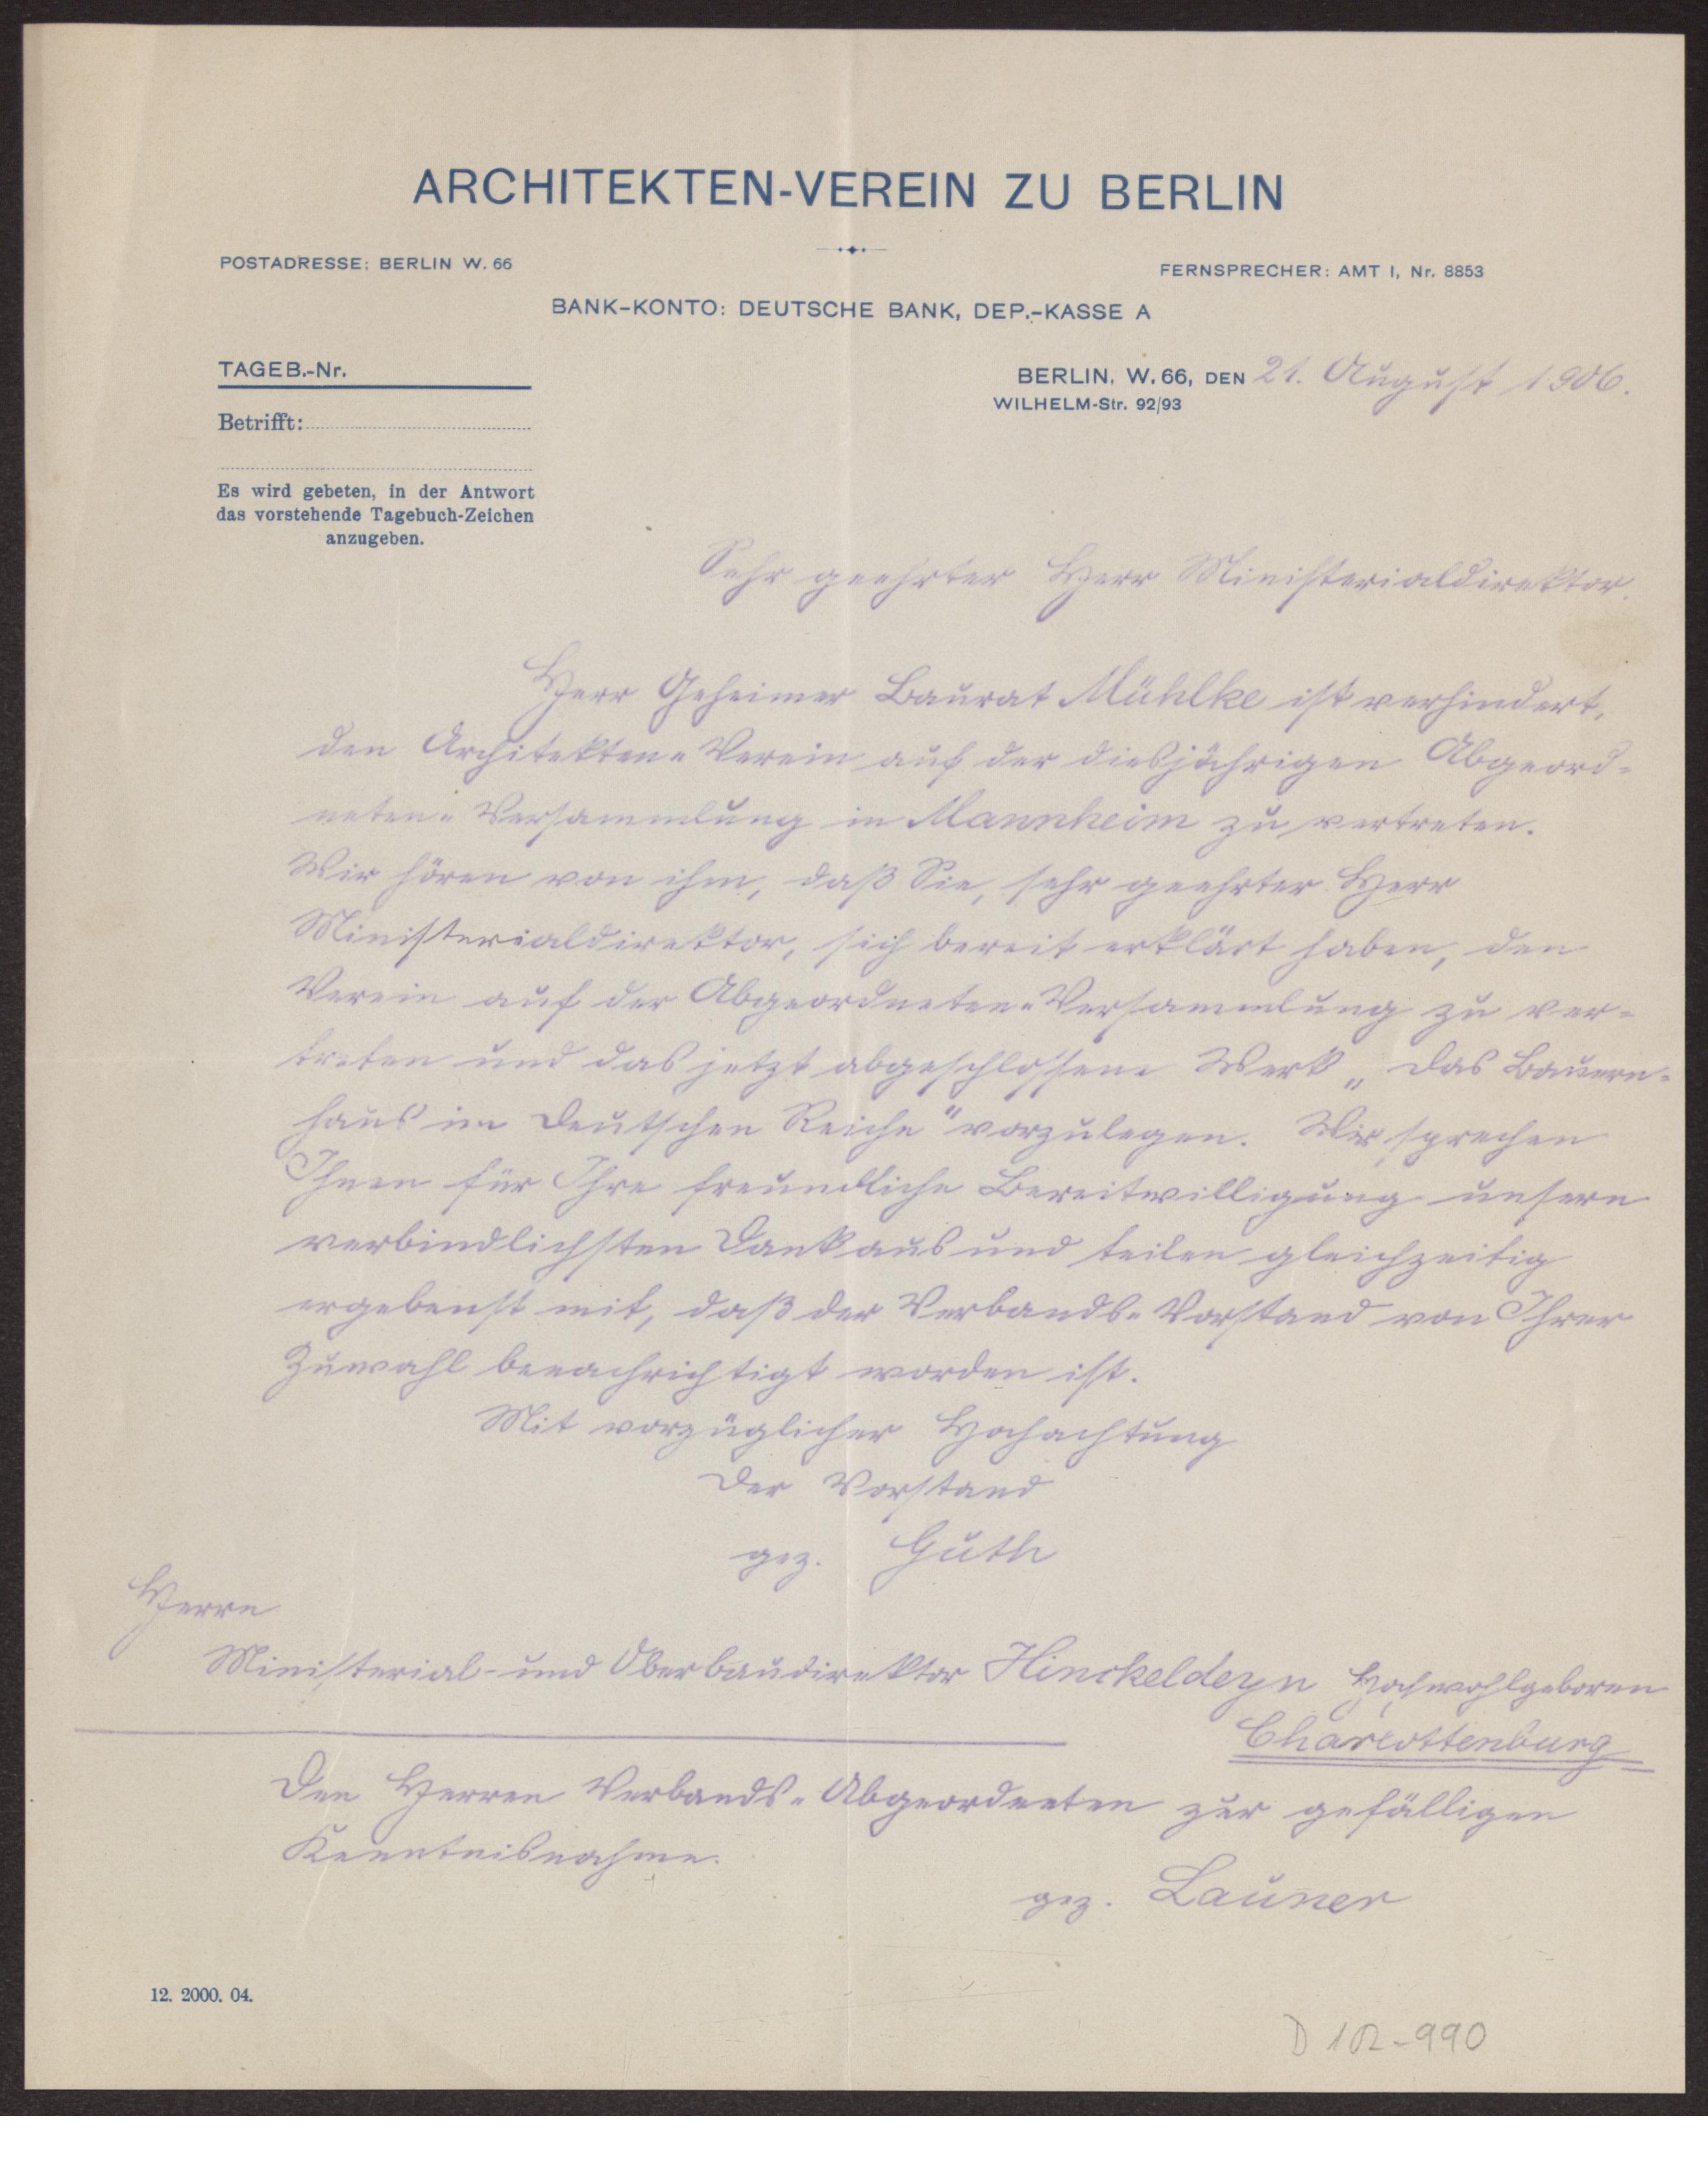 ARCHITEKTEN-VEREIN ZU BERLIN
POSTADRESSE: BERLIN W. 66
FERNSPRECHER: AMT I, Nr. 8853
BANK-KONTO: DEUTSCHE BANK, DEP.-KASSE A
TAGEB.-Nr.
BERLIN, W. 66, DEN 21. August 1906.
WILHELM-Str. 92/93
Betrifft:
Es wird gebeten, in der Antwort
das vorstehende Tagebuch-Zeichen
anzugeben.
Sehr geehrter Herr Ministerialdirektor.
Herr Geheimer Baurat Mühlke ist verhindert,
den Architekten-Verein auf der diesjährigen Abgeord-
neten-Versammlung in Mannheim zu vertreten.
Wir hören von ihm, daß Sie, sehr geehrter Herr
Ministerialdirektor, sich bereit erklärt haben, den
Verein auf der Abgeordneten-Versammlung zu ver-
treten und das jetzt abgeschlossene Werk „Das Bauern-
haus im Deutschen Reiche" vorzulegen. Wir sprechen
Ihnen für Ihre freundliche Bereitwilligung unsern
verbindlichsten Dank aus und teilen gleichzeitig
ergebenst mit, daß der Verbands-Vorstand von Ihrer
Zuwahl benachrichtigt worden ist.
Mit vorzüglicher Hochachtung
Der Vorstand
gez. Guth
Herrn
Ministerial- und Oberbaudirektor Hinckeldeyn Hochwohlgeboren
Charlottenburg
Den Herren Verbands-Abgeordneten zur gefälligen
Kenntnisnahme.
gez. Launer
12. 2000. 04.
D 102-990